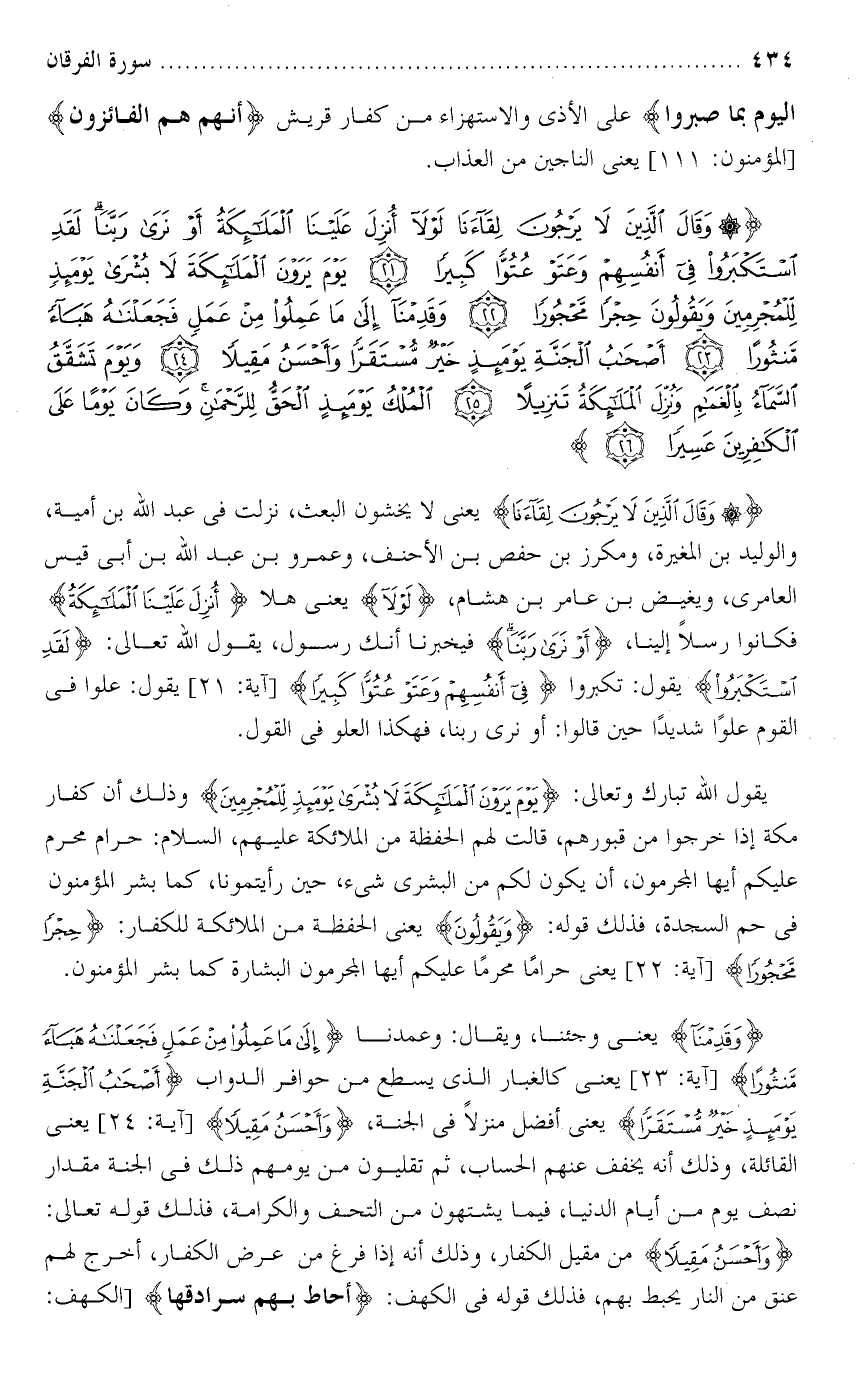 ٤٣٤ ........................................................................ سورة الفرقان
اليوم بما صبروا﴾ على الأذى والاستهزاء من كفار قريش ﴿أنهم هم الفائزون﴾
[المؤمنون: ١١١] يعنى الناجين من العذاب.
﴿۞ وَقَالَ ٱلَّذِينَ لَا يَرۡجُونَ لِقَآءَنَا لَوۡلَآ أُنزِلَ عَلَيۡنَا ٱلۡمَلَٰٓئِكَةُ أَوۡ نَرَىٰ رَبَّنَاۗ لَقَدِ
ٱسۡتَكۡبَرُواْ فِيٓ أَنفُسِهِمۡ وَعَتَوۡ عُتُوّٗا كَبِيرٗا ٢١ يَوۡمَ يَرَوۡنَ ٱلۡمَلَٰٓئِكَةَ لَا بُشۡرَىٰ يَوۡمَئِذٖ
لِّلۡمُجۡرِمِينَ وَيَقُولُونَ حِجۡرٗا مَّحۡجُورٗا ٢٢ وَقَدِمۡنَآ إِلَىٰ مَا عَمِلُواْ مِنۡ عَمَلٖ فَجَعَلۡنَٰهُ هَبَآءٗ
مَّنثُورًا ٢٣ أَصۡحَٰبُ ٱلۡجَنَّةِ يَوۡمَئِذٍ خَيۡرٞ مُّسۡتَقَرّٗا وَأَحۡسَنُ مَقِيلٗا ٢٤ وَيَوۡمَ تَشَقَّقُ
ٱلسَّمَآءُ بِٱلۡغَمَٰمِ وَنُزِّلَ ٱلۡمَلَٰٓئِكَةُ تَنزِيلًا ٢٥ ٱلۡمُلۡكُ يَوۡمَئِذٍ ٱلۡحَقُّ لِلرَّحۡمَٰنِۚ وَكَانَ يَوۡمًا عَلَى
ٱلۡكَٰفِرِينَ عَسِيرٗا ٢٦ ﴾
﴿۞ وَقَالَ ٱلَّذِينَ لَا يَرۡجُونَ لِقَآءَنَا﴾ يعنى لا يخشون البعث، نزلت فى عبد الله بن أمية،
والوليد بن المغيرة، ومكرز بن حفص بن الأحنف، وعمرو بن عبد الله بن أبى قيس
العامرى، ويغيض بن عامر بن هشام، ﴿لَوۡلَآ﴾ يعنى هلا ﴿أُنزِلَ عَلَيۡنَا ٱلۡمَلَٰٓئِكَةُ﴾
فكانوا رسلاً إلينا، ﴿أَوۡ نَرَىٰ رَبَّنَاۗ﴾ فيخبرنا أنك رسول، يقول الله تعالى: ﴿لَقَدِ
ٱسۡتَكۡبَرُواْ﴾ يقول: تكبروا ﴿فِيٓ أَنفُسِهِمۡ وَعَتَوۡ عُتُوّٗا كَبِيرٗا﴾ [آية: ٢١] يقول: علوا فى
القوم علوًا شديدًا حين قالوا: أو نرى ربنا، فهكذا العلو فى القول.
يقول الله تبارك وتعالى: ﴿يَوۡمَ يَرَوۡنَ ٱلۡمَلَٰٓئِكَةَ لَا بُشۡرَىٰ يَوۡمَئِذٖ لِّلۡمُجۡرِمِينَ﴾ وذلك أن كفار
مكة إذا خرجوا من قبورهم، قالت لهم الحفظة من الملائكة عليهم، السلام: حرام محرم
عليكم أيها المجرمون، أن يكون لكم من البشرى شىء، حين رأيتمونا، كما بشر المؤمنون
فى حم السجدة، فذلك قوله: ﴿وَيَقُولُونَ﴾ يعنى الحفظة من الملائكة للكفار: ﴿حِجۡرٗا
مَّحۡجُورٗا﴾ [آية: ٢٢] يعنى حرامًا محرمًا عليكم أيها المجرمون البشارة كما بشر المؤمنون.
﴿وَقَدِمۡنَآ﴾ يعنى وجئنا، ويقال: وعمدنا ﴿إِلَىٰ مَا عَمِلُواْ مِنۡ عَمَلٖ فَجَعَلۡنَٰهُ هَبَآءٗ
مَّنثُورًا﴾ [آية: ٢٣] يعنى كالغبار الذى يسطع من حوافر الدواب ﴿أَصۡحَٰبُ ٱلۡجَنَّةِ
يَوۡمَئِذٍ خَيۡرٞ مُّسۡتَقَرّٗا﴾ يعنى أفضل منزلاً فى الجنة، ﴿وَأَحۡسَنُ مَقِيلٗا﴾ [آية: ٢٤] يعنى
القائلة، وذلك أنه يخفف عنهم الحساب، ثم تقليون من يومهم ذلك فى الجنة مقدار
نصف يوم من أيام الدنيا، فيما يشتهون من التحف والكرامة، فذلك قوله تعالى:
﴿وَأَحۡسَنُ مَقِيلٗا﴾ من مقيل الكفار، وذلك أنه إذا فرغ من عرض الكفار، أخرج لهم
عنق من النار يحبط بهم، فذلك قوله فى الكهف: ﴿أحاط بهم سرادقها﴾ [الكهف: